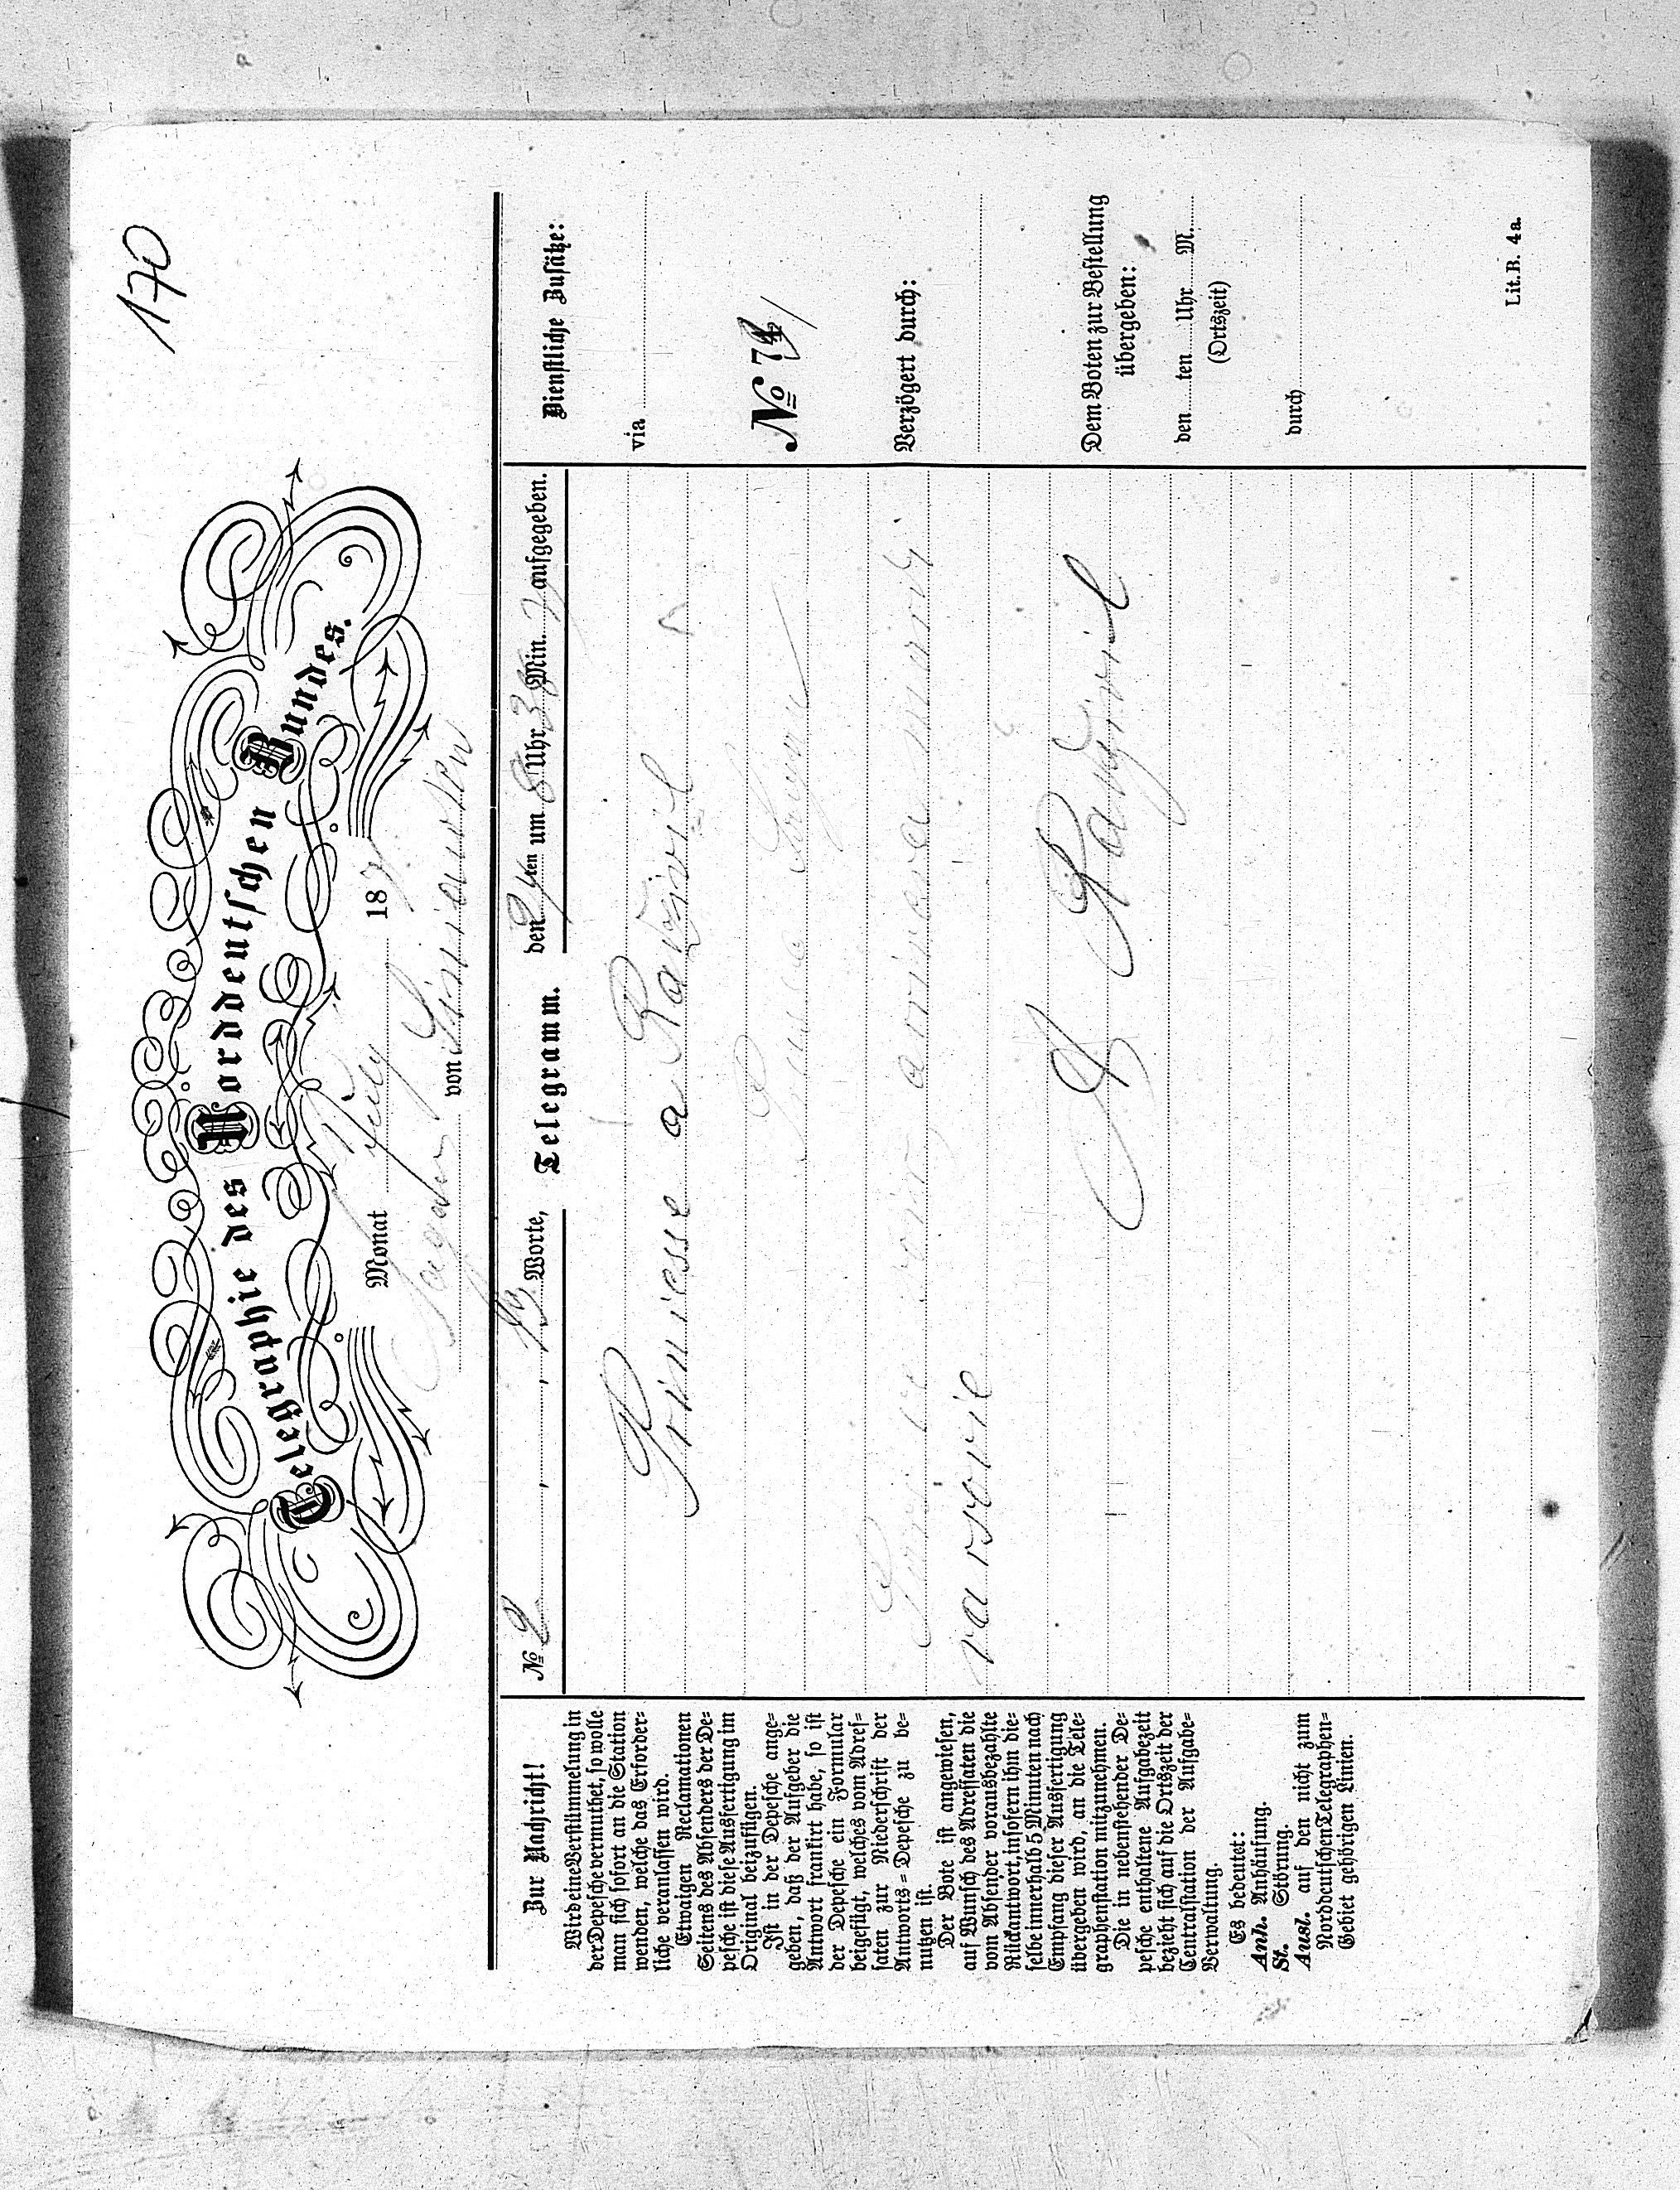 170
Telegraphie des Norddeutschen Bundes.
Monat July 187
von
No 2 Worte, Telegramm. den 24ten um 8 Uhr Min. aufgegeben.
Zur Nachricht!
Wird eine Verstimmelung in
der Depesche vermuthet, so wolle
man sich sofort an die Station
wenden, welche das Erforder-
liche veranlassen wird.
Etwaigen Reclamationen
Seitens des Absenders der De-
pesche ist diese Ausfertigung im
Original beizufügen.
Ist in der Depesche ange-
geben, daß der Aufgeber die
Antwort frankirt habe, so ist
der Depesche ein Formular
beigefügt, welches vom Adres-
saten zur Niederschrift der
Antworts-Depesche zu be-
nutzen ist.
Der Bote ist angewiesen,
auf Wunsch des Adressaten die
vom Absender vorausbezahlte
Rückantwort, insofern ihm die-
selbe innerhalb 5 Minuten nach
Empfang dieser Ausfertigung
übergeben wird, an die Tele-
graphenstation mitzunehmen.
Die in nebenstehender De-
pesche enthaltene Aufgabezeit
bezieht sich auf die Ortszeit der
Centralstation der Aufgabe-
Verwaltung.
Es bedeutet:
Anh. Anhäufung.
St. Störung.
Ausl. auf den nicht zum
Norddeutschen Telegraphen-
Gebiet gehörigen Linien.
Prinzesse a Radzivil
arrivera mardi
varsovie
A Radzivil
Dienstliche Zusätze:
via
No 74
Verzögert durch:
Dem Boten zur Bestellung
übergeben:
den ten Uhr M.
(Ortszeit)
durch
Lit. B. 4a.